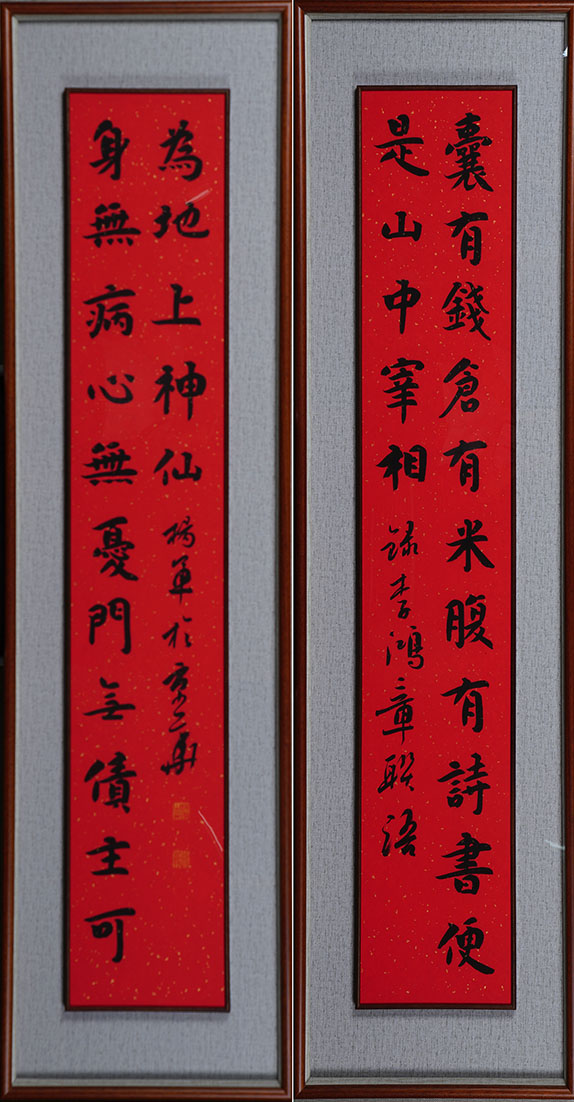 囊有錢倉有米腹有詩書便
是山中宰相 録李鴻章聯語
身無病心無憂門无債主可
為地上神仙 楊軍於京華